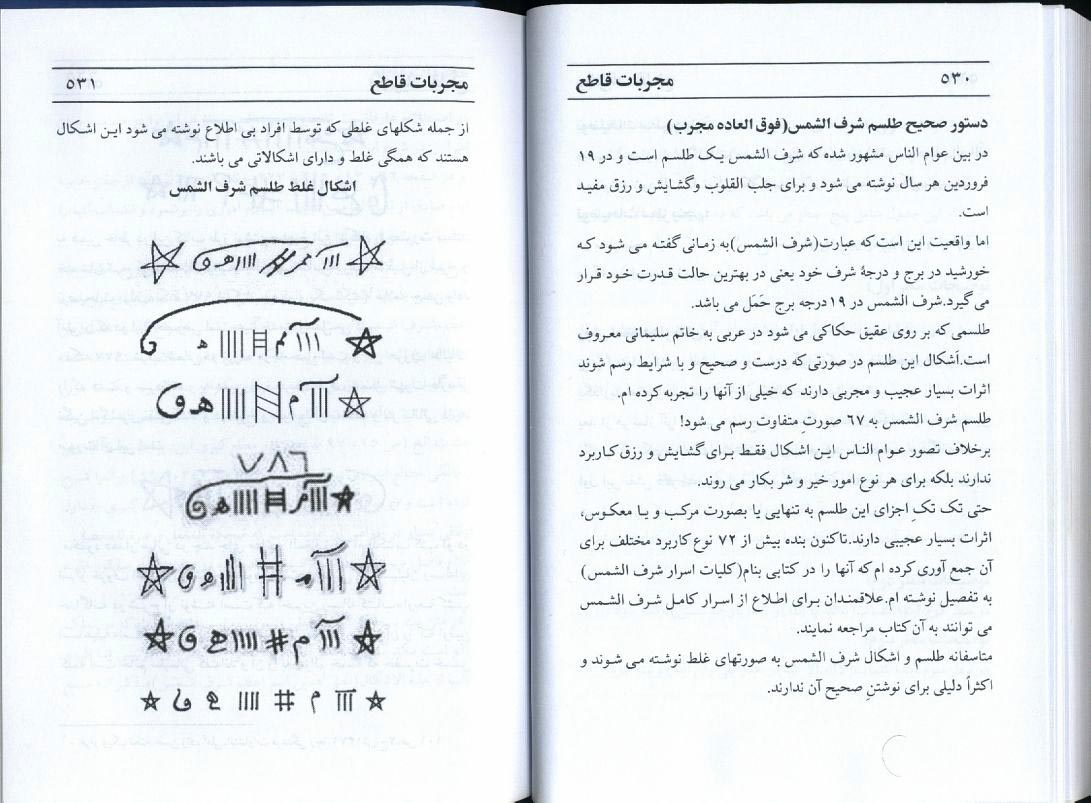 مجربات قاطع ۵۳۰
دستور صحیح طلسم شرف الشمس(فوق العاده مجرب)
در بین عوام الناس مشهور شده که شرف الشمس یک طلسم است و در ۱۹
فروردین هر سال نوشته می شود و برای جلب القلوب وگشایش و رزق مفید
است.
اما واقعیت این است که عبارت(شرف الشمس)به زمانی گفته می شود که
خورشید در برج و درجهٔ شرف خود یعنی در بهترین حالت قدرت خود قرار
می گیرد.شرف الشمس در ۱۹درجه برج حَمَل می باشد.
طلسمی که بر روی عقیق حکاکی می شود در عربی به خاتم سلیمانی معروف
است.اَشکال این طلسم در صورتی که درست و صحیح و با شرایط رسم شوند
اثرات بسیار عجیب و مجربی دارند که خیلی از آنها را تجربه کرده ام.
طلسم شرف الشمس به ۶۷ صورتِ متفاوت رسم می شود!
برخلاف تصور عوام الناس این اشکال فقط برای گشایش و رزق کاربرد
ندارند بلکه برای هر نوع امور خیر و شر بکار می روند.
حتی تک تکِ اجزای این طلسم به تنهایی یا بصورت مرکب و یا معکوس،
اثرات بسیار عجیبی دارند.تاکنون بنده بیش از ۷۲ نوع کاربرد مختلف برای
آن جمع آوری کرده ام که آنها را در کتابی بنام(کلیات اسرار شرف الشمس)
به تفصیل نوشته ام.علاقمندان برای اطلاع از اسرار کامل شرف الشمس
می توانند به آن کتاب مراجعه نمایند.
متاسفانه طلسم و اشکال شرف الشمس به صورتهای غلط نوشته می شوند و
اکثراً دلیلی برای نوشتنِ صحیح آن ندارند.
مجربات قاطع ۵۳۱
از جمله شکلهای غلطی که توسط افراد بی اطلاع نوشته می شود این اشکال
هستند که همگی غلط و دارای اشکالاتی می باشند.
اشکال غلط طلسم شرف الشمس